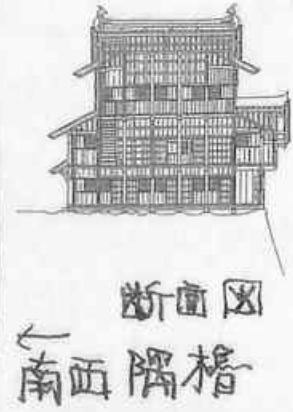 断面図
←
南西隅櫓